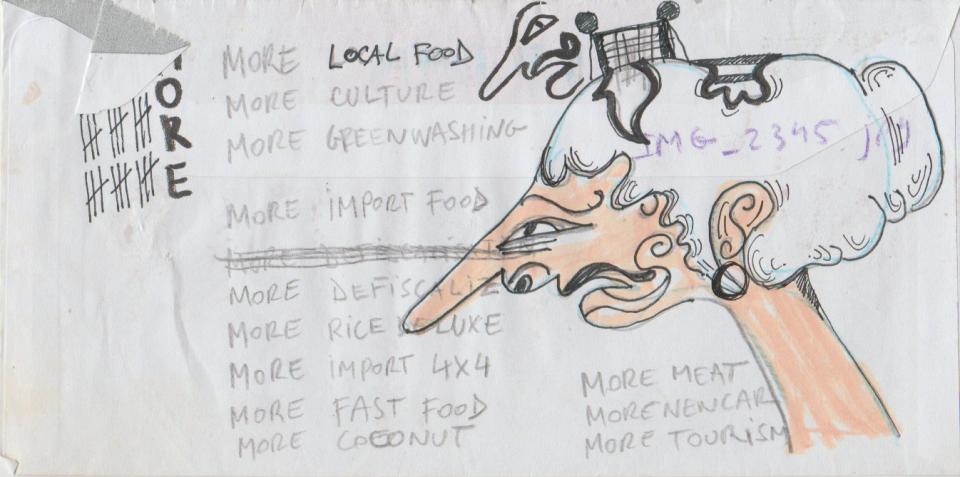 ORE
MORE LOCAL FOOD
MORE CULTURE
MORE GREENWASHING
MORE IMPORT FOOD
MORE DEFISCALIZE
MORE RICE DELUXE
MORE IMPORT 4X4
MORE FAST FOOD
MORE COCONUT
MORE MEAT
MORENENCAR
MORE TOURISM
IMG_2345